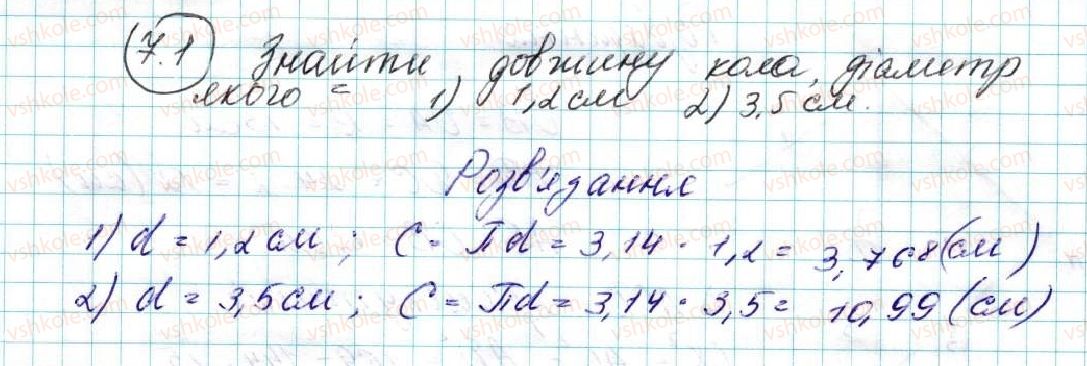 7.1 Знайти довжину кола, діаметр
якого = 1) 1,2 см 2) 3,5 см.
Розв'язання
1) d = 1,2 см ; C = πd = 3,14 · 1,2 = 3,768 (см)
2) d = 3,5 см ; C = πd = 3,14 · 3,5 = 10,99 (см)